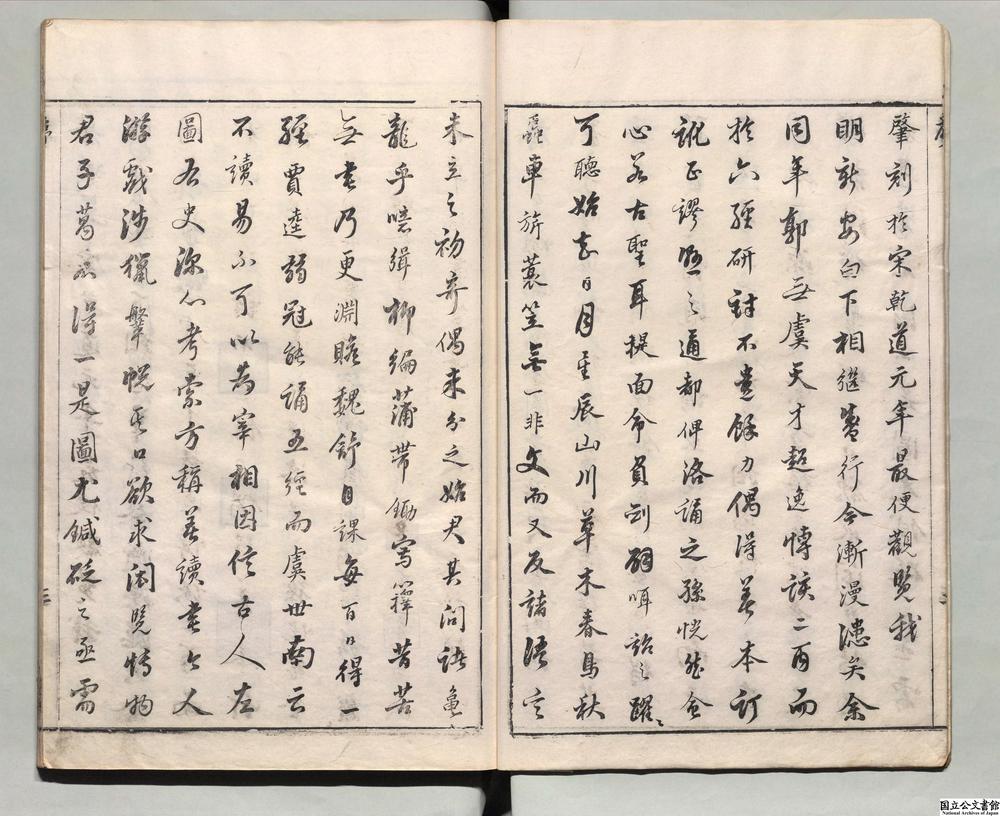 肇刻於宋乾道元年最便觀覽我
明新安白下相繼盛行今漸漫漶矣余
同年郭無虞天才超逸博談二酉而
於六經研討不遺餘力偶得善本訂
訛正謬懸之通都俾洛誦之孫恍然會
心若古聖耳提面命負劍辟咡詔之躍〻
可聽始知日月星辰山川草木春鳥秋
蟲車旂蓑笠無一非文而又反諸語言
未立之初奇偶未分之始君其問諸龜
龍乎噫緝柳編蒲帶鋤寫籜昔苦
無書乃更淵贍魏舒日課每百日得一
經賈逵弱冠能誦五經而虞世南云
不讀易不可以為宰相因信古人左
圖右史深心考索方稱善讀書今人
游戲涉獵鞶帨其口欲求閎覽博物
君子曷可得一是圖尤鍼砭之亟需
國立公文書館
National Archives of Japan